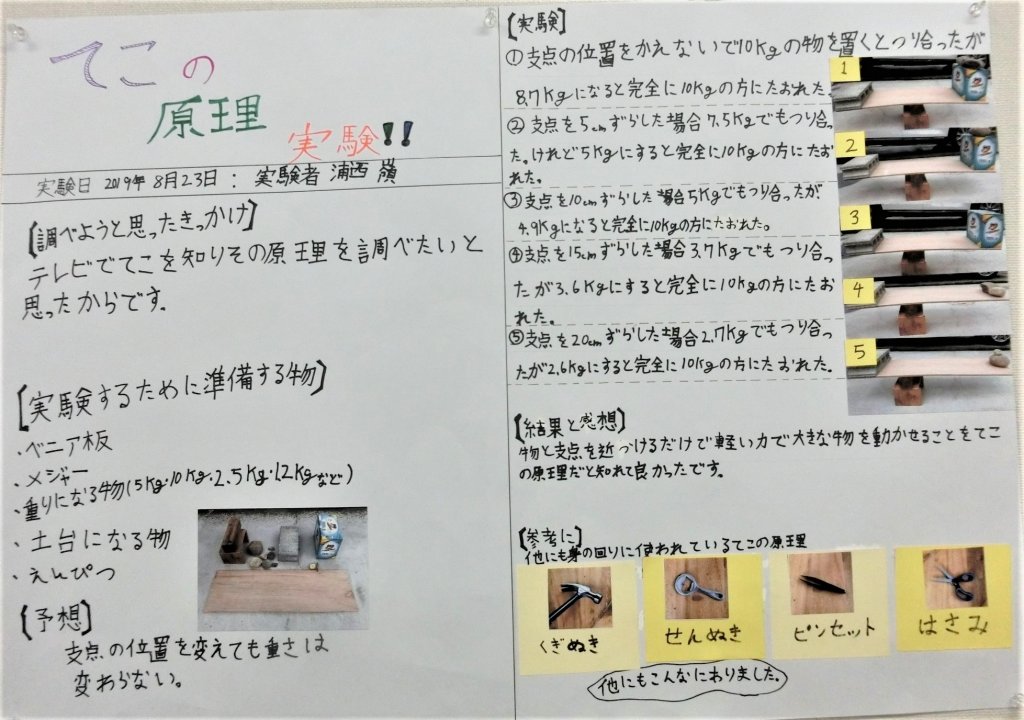 てこの
原理
実験!!
実験日 2019年 8月23日 : 実験者 浦西 嶺
[調べようと思ったきっかけ]
テレビでてこを知りその原理を調べたいと
思ったからです。
[実験するために準備する物]
・ベニア板
・メジャー
・重りになる物(5Kg・10Kg・2.5Kg・1.2Kgなど)
・土台になる物
・えんぴつ
[予想]
支点の位置を変えても重さは
変わらない。
[実験]
①支点の位置をかえないで10Kgの物を置くとつり合ったが
8.7Kgになると完全に10Kgの方にたおれた。
②支点を5cmずらした場合7.5Kgでもつり合っ
た。けれど5Kgにすると完全に10Kgの方にたお
れた。
③支点を10cmずらした場合5Kgでもつり合ったが、
4.9Kgになると完全に10Kgの方にたおれた。
④支点を15cmずらした場合3.7Kgでもつり合っ
たが3.6Kgにすると完全に10Kgの方にたお
れた。
⑤支点を20cmずらした場合2.7Kgでもつり合っ
たが2.6Kgにすると完全に10Kgの方にたおれた。
1
2
3
4
5
[結果と感想]
物と支点を近づけるだけで軽い力で大きな物を動かせることをてこ
の原理だと知れて良かったです。
[参考に]
他にも身の回りに使われているてこの原理
くぎぬき
せんぬき
ピンセット
はさみ
他にもこんなにありました。